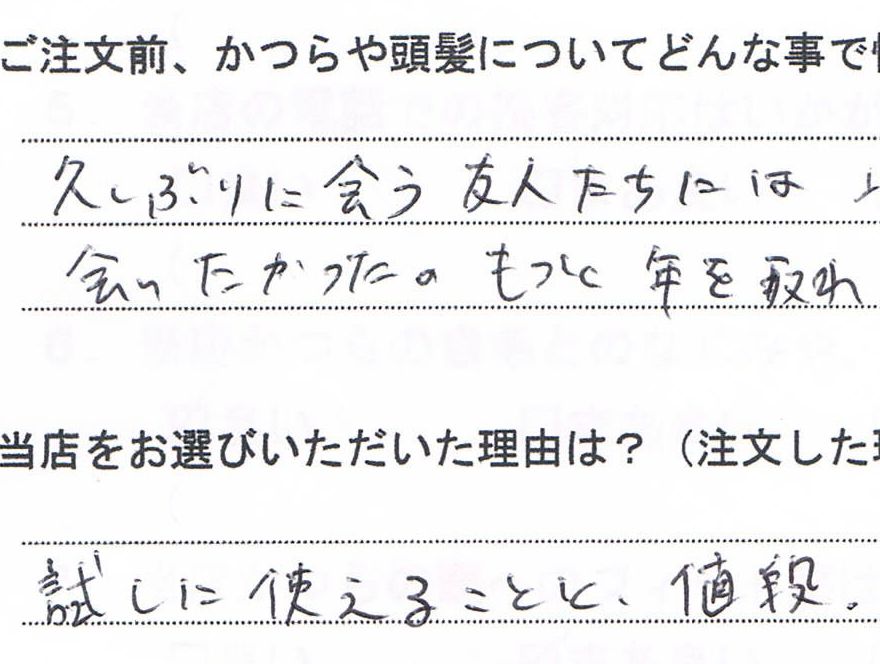 ご注文前、かつらや頭髪についてどんな事で
久しぶりに会う友人たちには
会いたかった。もっと年を取れ
当店をお選びいただいた理由は？（注文した
試しに使えることと、値段。